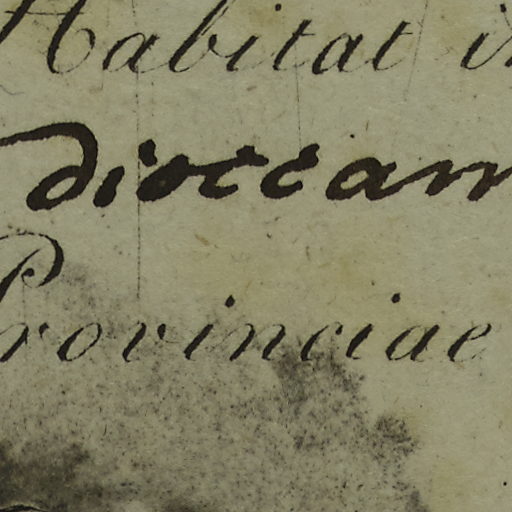 Habitat i
dioccam
Provinciae